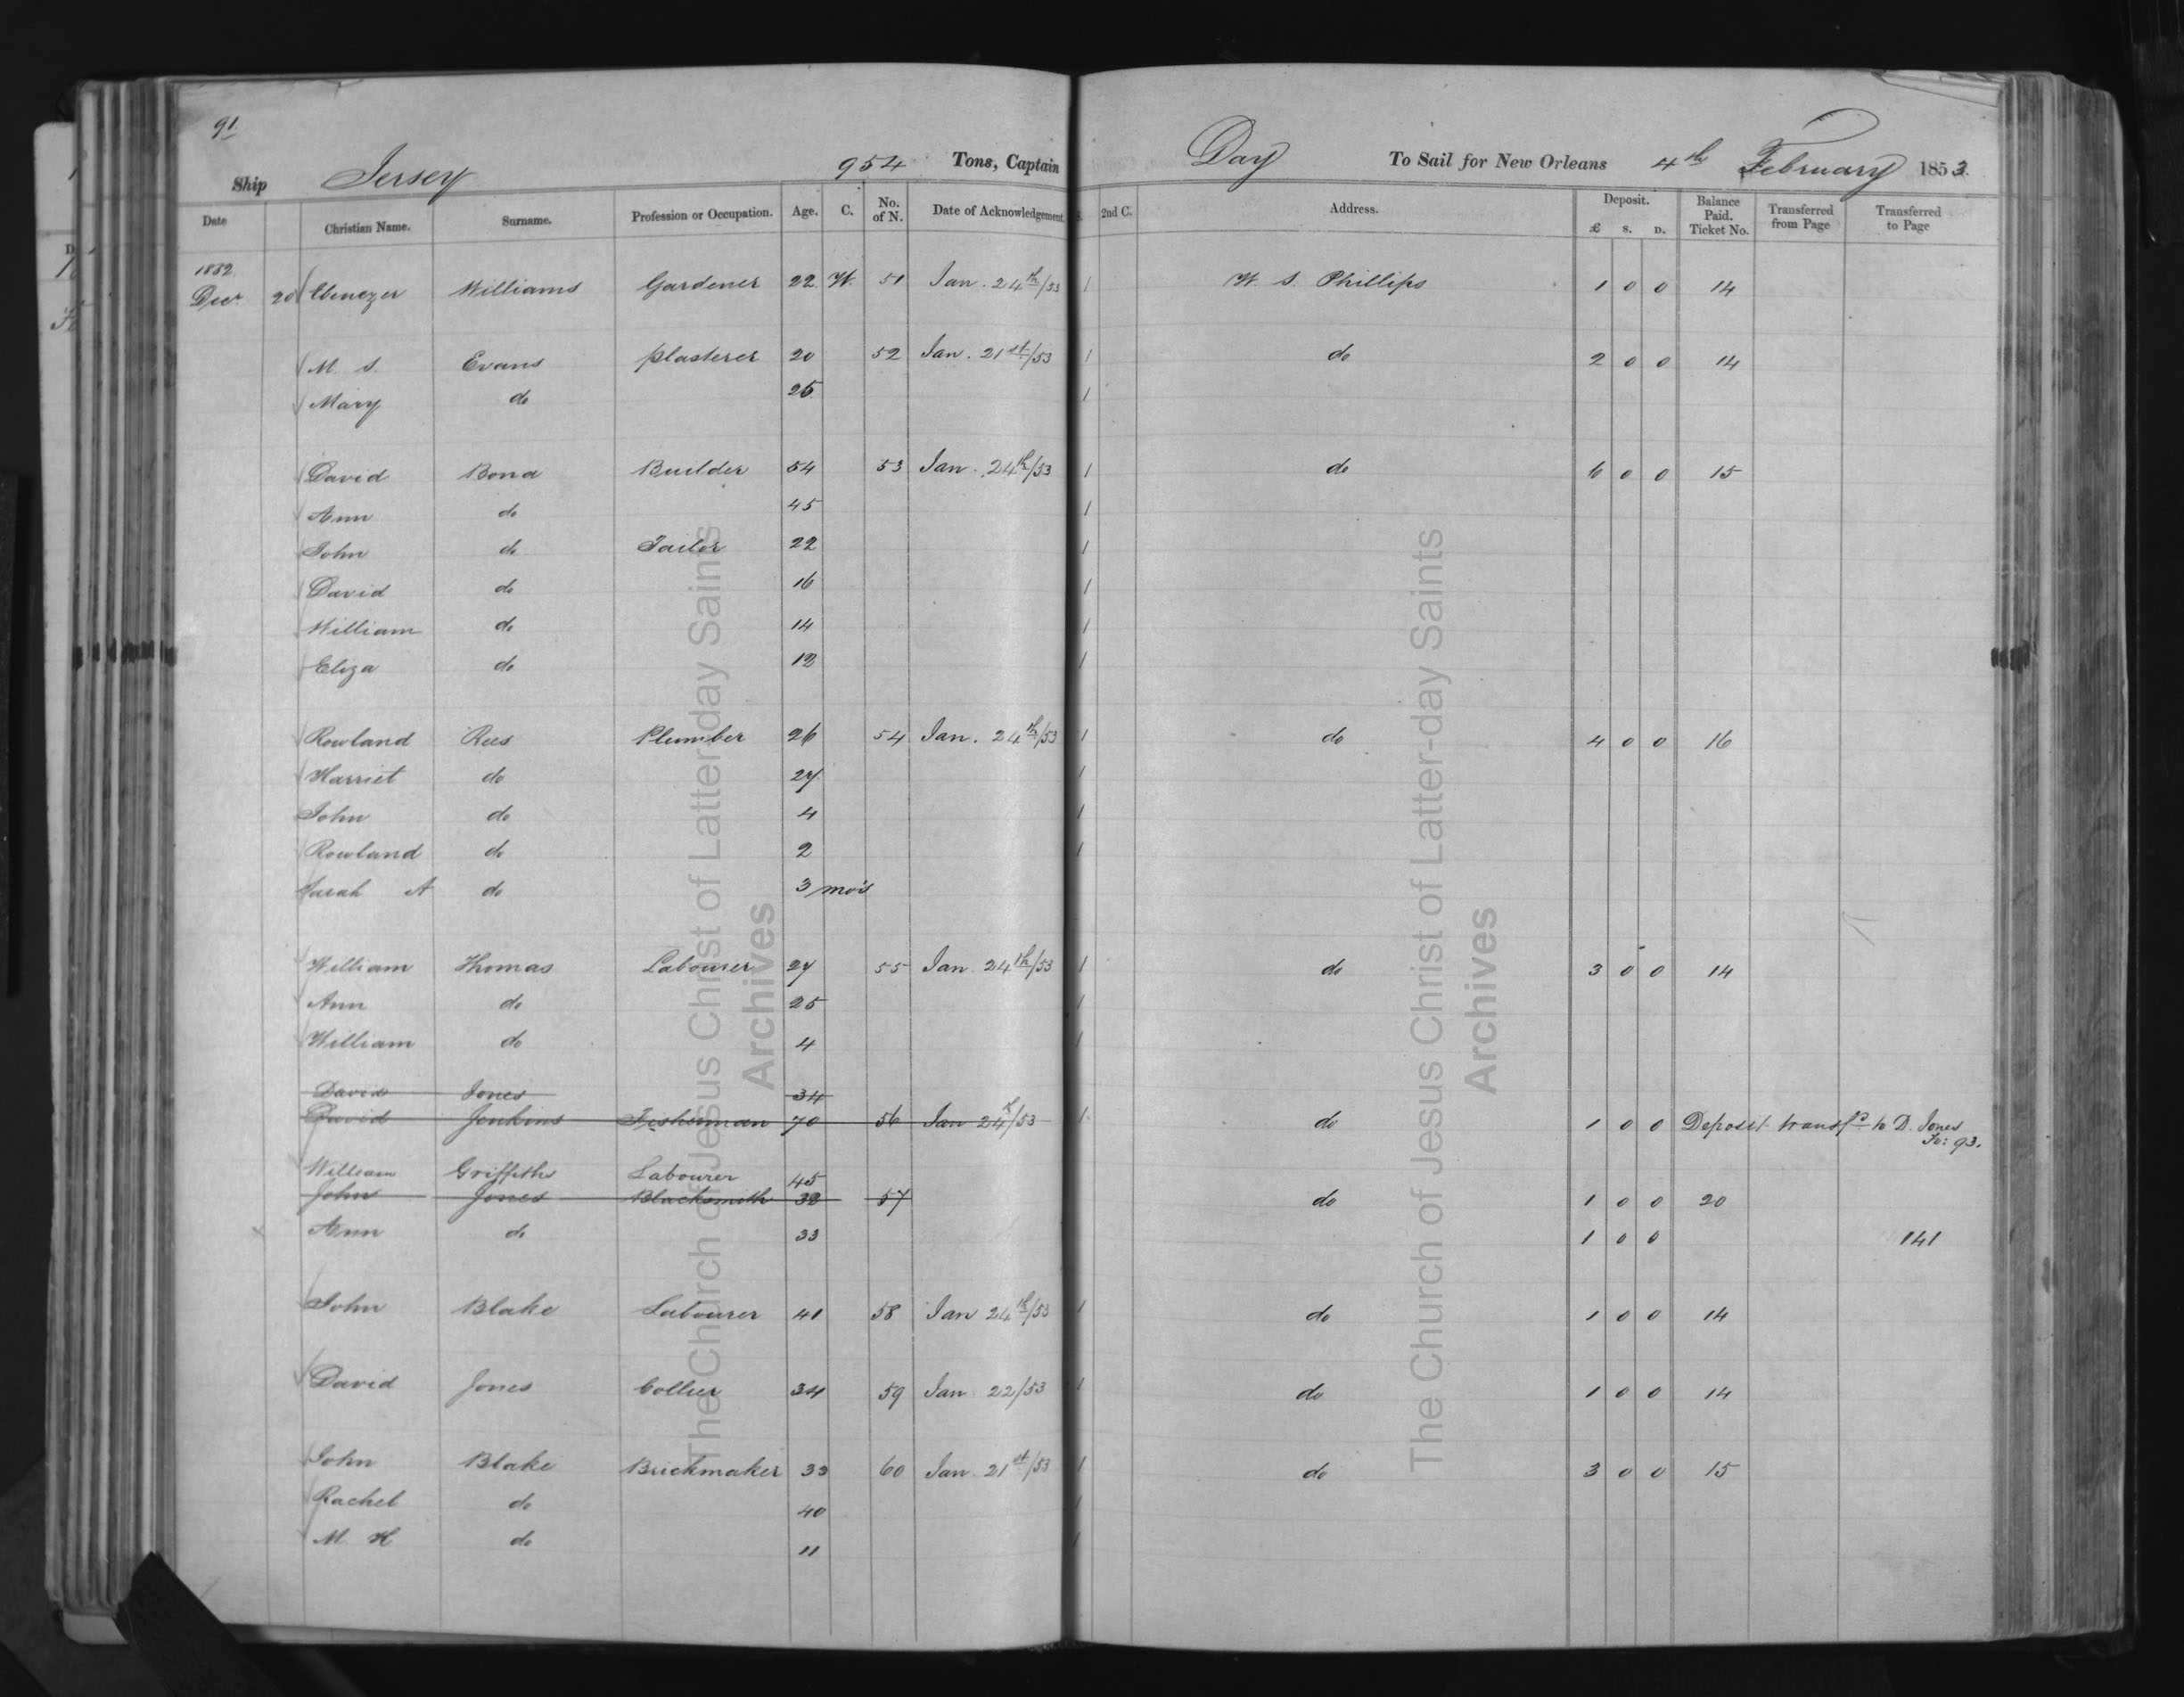 91
Ship Jersey 954 Tons, Captain Day To Sail for New Orleans 4th February 1853.
Date Christian Name. Surname. Profession or Occupation. Age. C. No. of N. Date of Acknowledgement. S. 2nd C. Address. Deposit. £ S. D. Balance Paid. Ticket No. Transferred from Page Transferred to Page
1852
Decr 20 Ebenezer Williams Gardener 22 W. 51 Jan. 24th/53 1 W. S. Phillips 1 0 0 14
M. S. Evans plasterer 20 52 Jan. 21st/53 1 do 2 0 0 14
Mary do 25 1
David Bona Builder 54 53 Jan. 24th/53 1 do 6 0 0 15
Ann do 45 1
John do Tailor 22 1
David do 16 1
William do 14 1
Eliza do 12 1
Rowland Rees Plumber 26 54 Jan. 24th/53 1 do 4 0 0 16
Harriet do 27 1
John do 4 1
Rowland do 2 1
Sarah A do 3 mo's
William Thomas Labourer 27 55 Jan. 24th/53 1 do 3 0 0 14
Ann do 25 1
William do 4 1
David Jones 34
David Jenkins Fisherman 70 56 Jan 24th/53 1 do 1 0 0 Deposit transfd to D. Jones
Fo: 93.
William Griffiths Labourer 45
John Jones Blacksmith 32 57 do 1 0 0 20
Ann do 33 1 0 0 141
John Blake Labourer 41 58 Jan 24th/53 1 do 1 0 0 14
David Jones Collier 34 59 Jan 22/53 1 do 1 0 0 14
John Blake Brickmaker 33 60 Jan. 21st/53 1 do 3 0 0 15
Rachel do 40 1
M. H do 11 1
The Church of Jesus Christ of Latter-day Saints
Archives
The Church of Jesus Christ of Latter-day Saints
Archives